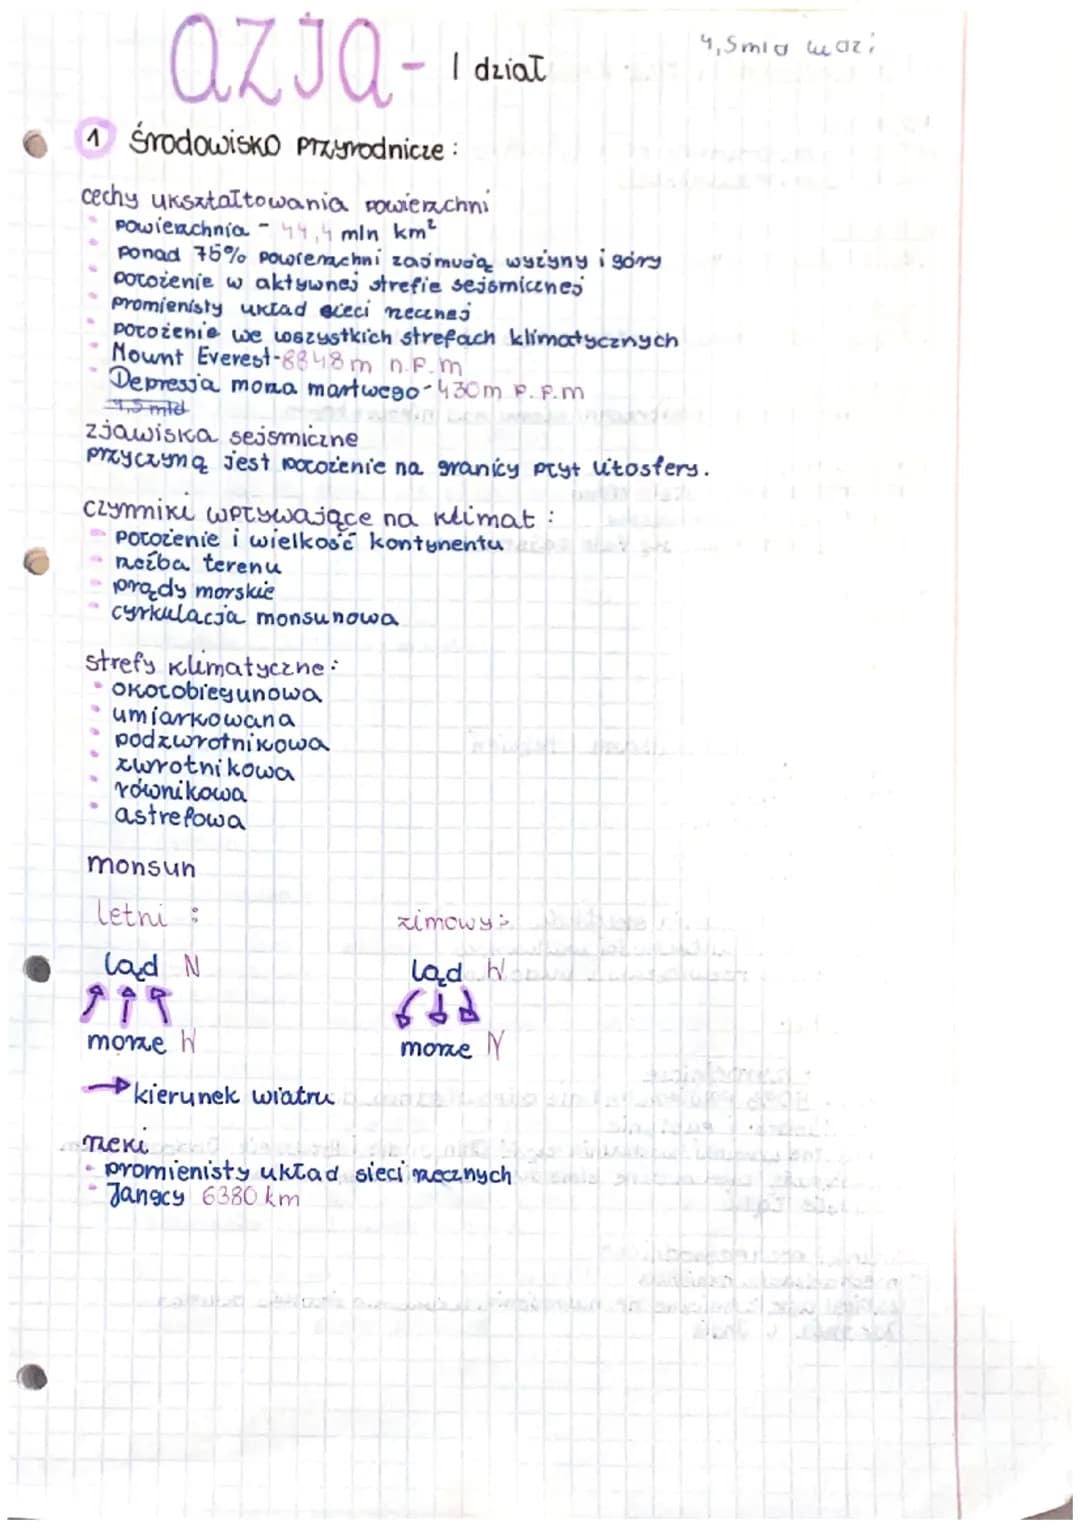 AZJA - I dział
4,5 mld
1 Środowisko przyrodnicze:
cechy ukształtowania powierzchni
powierzchnia - 44,4 mln km²
ponad 75% powierzchni zajmują wyżyny i góry
położenie w aktywnej strefie sejsmicznej
promienisty układ sieci rzecznej
położenie we wszystkich strefach klimatycznych
Mount Everest - 8848 m n.p.m
Depresja morza martwego - 430m p.p.m
4,5 mld
zjawiska sejsmiczne
przyczyną jest położenie na granicy płyt litosfery.
czynniki wpływające na klimat:
położenie i wielkość kontynentu
rzeźba terenu
prądy morskie
cyrkulacja monsunowa
strefy klimatyczne:
okołobiegunowa
umiarkowana
podzwrotnikowa
zwrotnikowa
równikowa
astrefowa
monsun
letni:
zimowy:
ląd N
ląd W
morze W
morze N
→ kierunek wiatru
rzeki
promienisty układ sieci rzecznych
Jangcy 6380 km